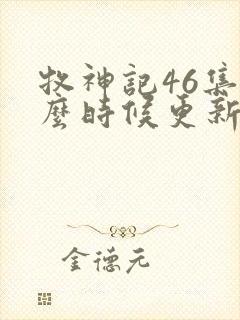 牧神記46集
麼時候更新
金德元